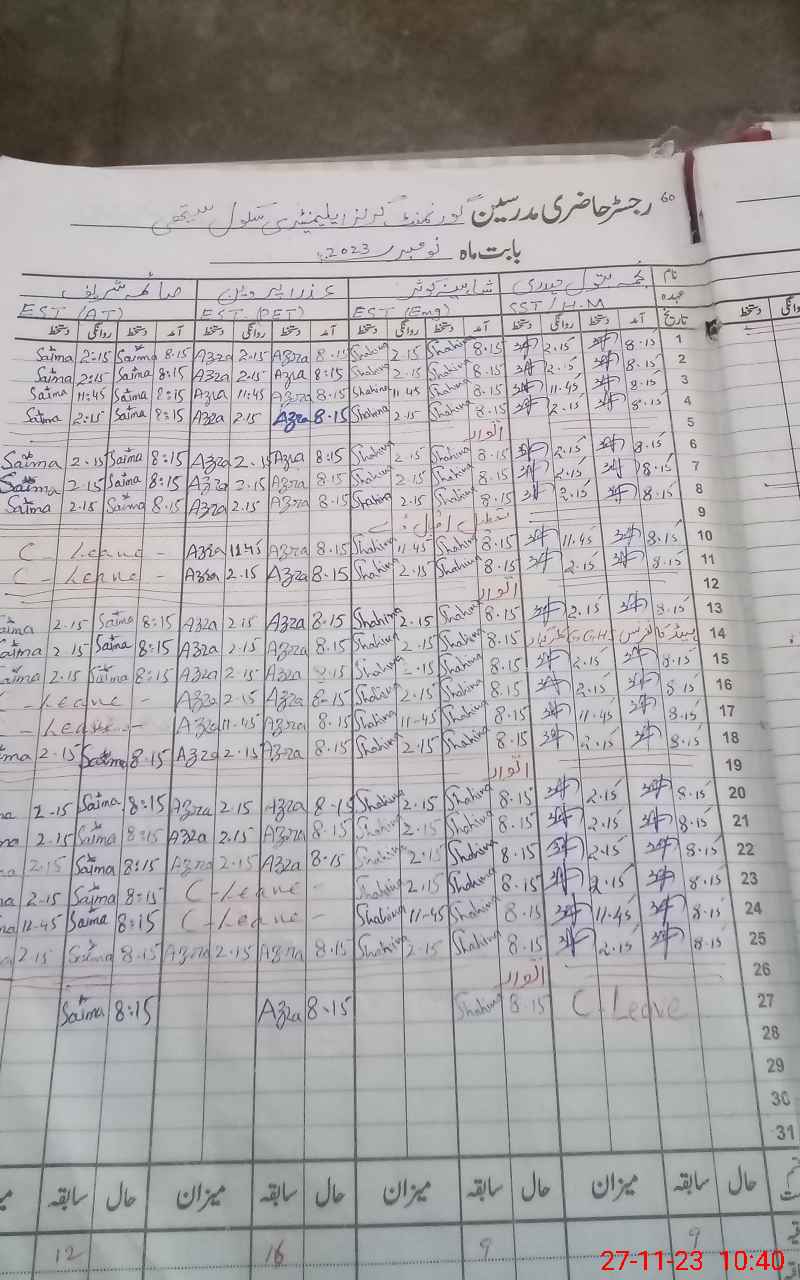 60 رجسٹر حاضری مدرسین گورنمنٹ گرلز ایلیمنٹری سکول
بابت ماہ نومبر 2023ء
نام شاہین کوثر عذرا پروین صائمہ شریف
عہدہ SST/H.M EST (Eng) EST (PET) EST (AT)
تاریخ آمد دستخط روانگی دستخط آمد دستخط روانگی دستخط آمد دستخط روانگی دستخط آمد دستخط روانگی دستخط
1 8.15 2.15 8.15 Shahina 2.15 Shahina 8.15 Azra 2.15 Azra 8.15 Saima 2:15 Saima
2 8.15 2.15 8.15 Shahina 2.15 Shahina 8:15 Azra 2.15 Azra 8:15 Saima 2:15 Saima
3 8.15 11.45 8.15 Shahina 11.45 Shahina 8.15 Azra 11:45 Azra 8:15 Saima 11:45 Saima
4 8.15 2.15 8.15 Shahina 2.15 Shahina 8.15 Azra 2.15 Azra 8:15 Saima 2:15 Saima
5 اتوار
6 8.15 2.15 8.15 Shahina 2.15 Shahina 8:15 Azra 2.15 Azra 8:15 Saima 2.15 Saima
7 8.15 2.15 8.15 Shahina 2.15 Shahina 8.15 Azra 2.15 Azra 8:15 Saima 2.15 Saima
8 8.15 2.15 8.15 Shahina 2.15 Shahina 8.15 Azra 2.15 Azra 8.15 Saima 2.15 Saima
9 تعطیل اقبال ڈے
10 8.15 11.45 8.15 Shahina 11.45 Shahina 8.15 Azra 11.45 Azra C - Leave -
11 8.15 2.15 8.15 Shahina 2.15 Shahina 8.15 Azra 2.15 Azra C - Leave -
12 اتوار
13 8.15 2.15 8.15 Shahina 2.15 Shahina 8.15 Azra 2.15 Azra 8:15 Saima 2.15 Saima
14 8.15 Shahina 2.15 Shahina 8.15 Azra 2.15 Azra 8:15 Saima 2.15 Saima
15 8.15 2.15 8.15 Shahina Shahina 8.15 Azra 2.15 Azra 8:15 Saima 2.15 Saima
16 8.15 2.15 8.15 Shahina 2.15 Shahina 8.15 Azra 2.15 Azra C - Leave -
17 8.15 11.45 8.15 Shahina 11-45 Shahina 8.15 Azra 11-45 Azra C - Leave -
18 8.15 2.15 8.15 Shahina 2.15 Shahina 8.15 Azra 2.15 Azra 8.15 Saima 2.15
19 اتوار
20 8.15 2.15 8.15 Shahina 2.15 Shahina 8.15 Azra 2.15 Azra 8:15 Saima 2.15
21 8.15 2.15 8.15 Shahina 2.15 Shahina 8.15 Azra 2.15 Azra 8:15 Saima 2.15
22 8.15 2.15 8.15 Shahina 2.15 Shahina 8.15 Azra 2.15 Azra 8:15 Saima 2.15
23 8.15 2.15 8.15 Shahina 2.15 Shahina C - Leave - 8:15 Saima 2.15
24 8.15 11.45 8.15 Shahina 11-45 Shahina C - Leave - 8:15 Saima 11-45
25 8.15 2.15 8.15 Shahina 2.15 Shahina 8.15 Azra 2.15 Azra 8.15 Saima 2.15
26 اتوار
27 C - Leave 8.15 Shahina 8.15 Azra 8:15 Saima
28
29
30
31
حال سابقہ میزان حال سابقہ میزان حال سابقہ میزان حال سابقہ
9 9 16 12
27-11-23 10:40